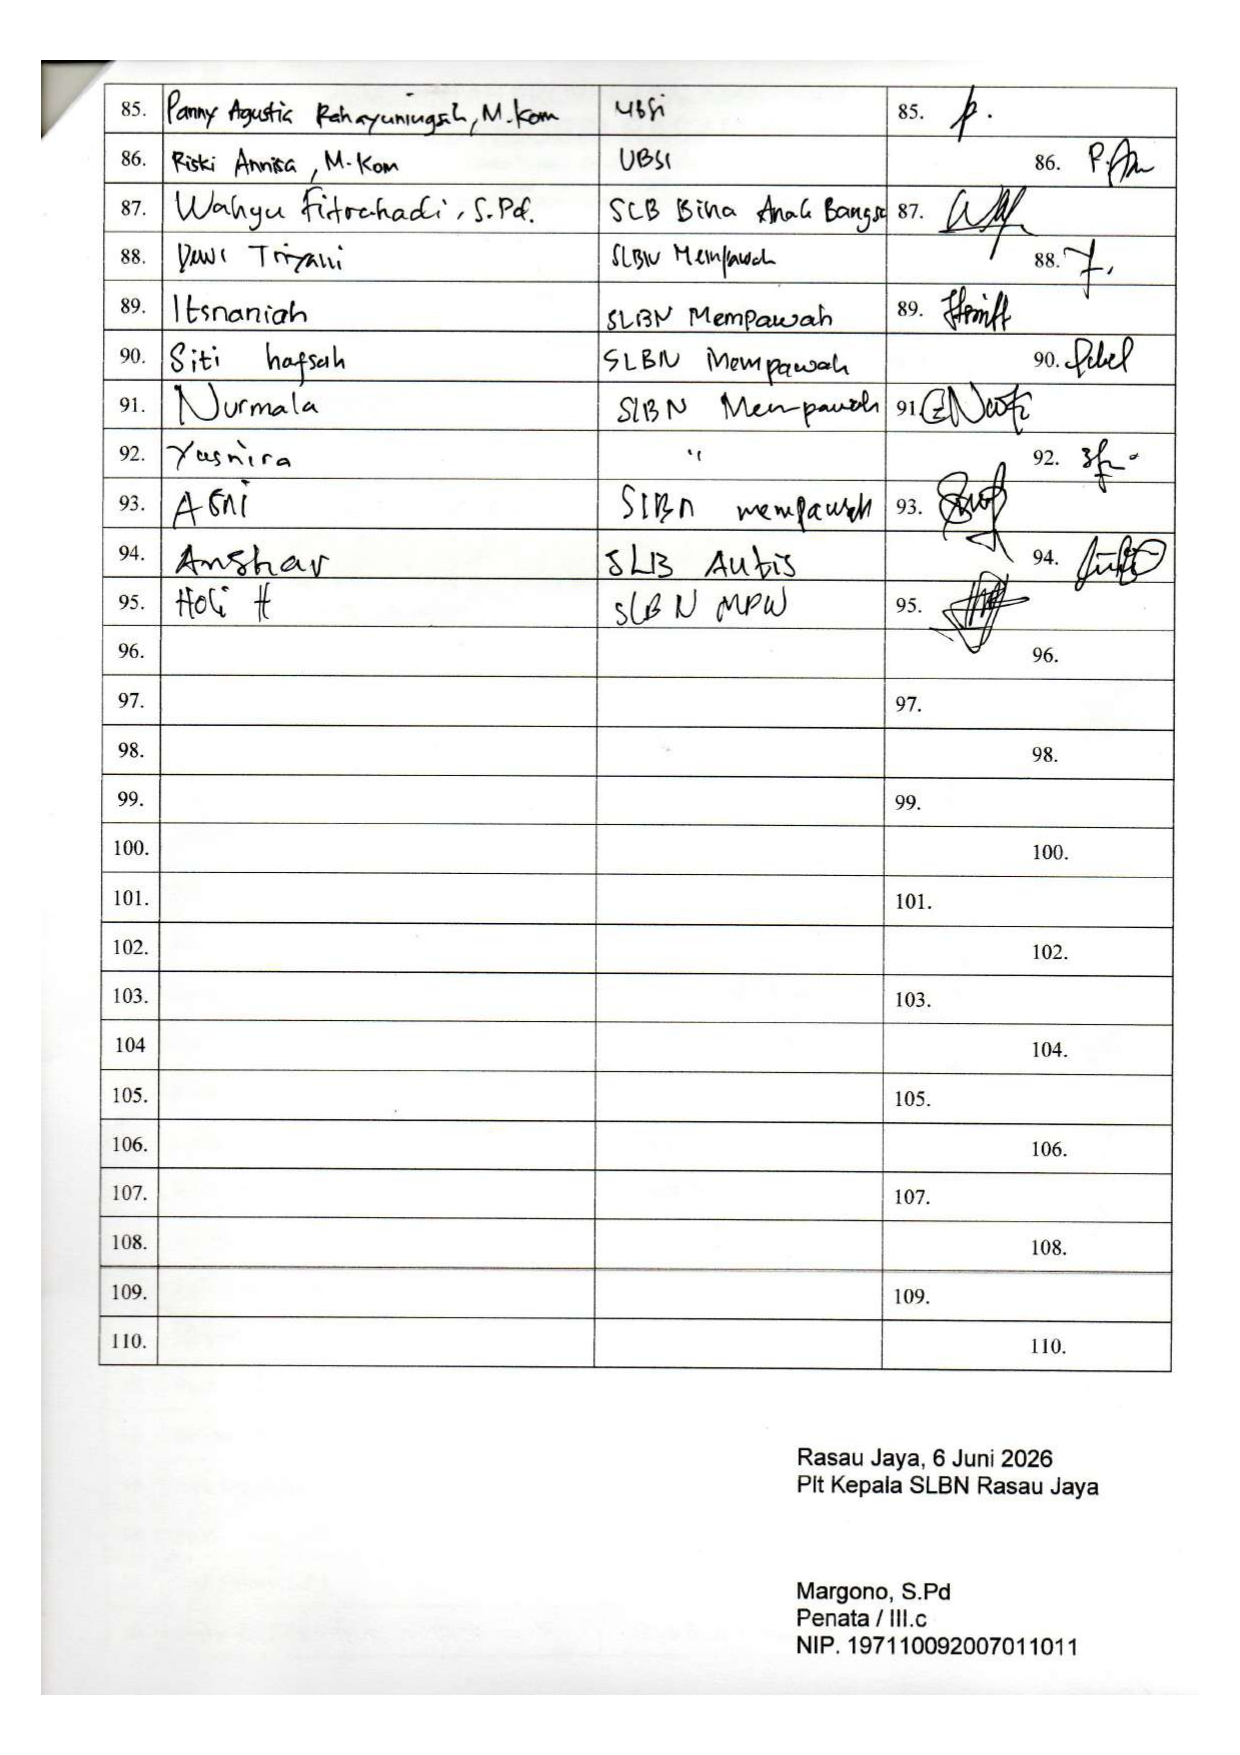 85. Panny Agustia Rahayuningsih, M.Kom UBSi 85.
86. Riski Annisa, M.Kom UBSI 86.
87. Wahyu Fitrahadi, S.Pd. SLB Bina Anak Bangsa 87.
88. Dewi Triyani SLBN Mempawah 88.
89. Itsnaniah SLBN Mempawah 89.
90. Siti hafsah SLBN Mempawah 90.
91. Nurmala SLBN Mempawah 91.
92. Yusnira " 92.
93. SLBN mempawah 93.
94. Anshar SLB Autis 94.
95. H SLBN MPW 95.
96. 96.
97. 97.
98. 98.
99. 99.
100. 100.
101. 101.
102. 102.
103. 103.
104 104.
105. 105.
106. 106.
107. 107.
108. 108.
109. 109.
110. 110.
Rasau Jaya, 6 Juni 2026
Plt Kepala SLBN Rasau Jaya
Margono, S.Pd
Penata / III.c
NIP. 197110092007011011